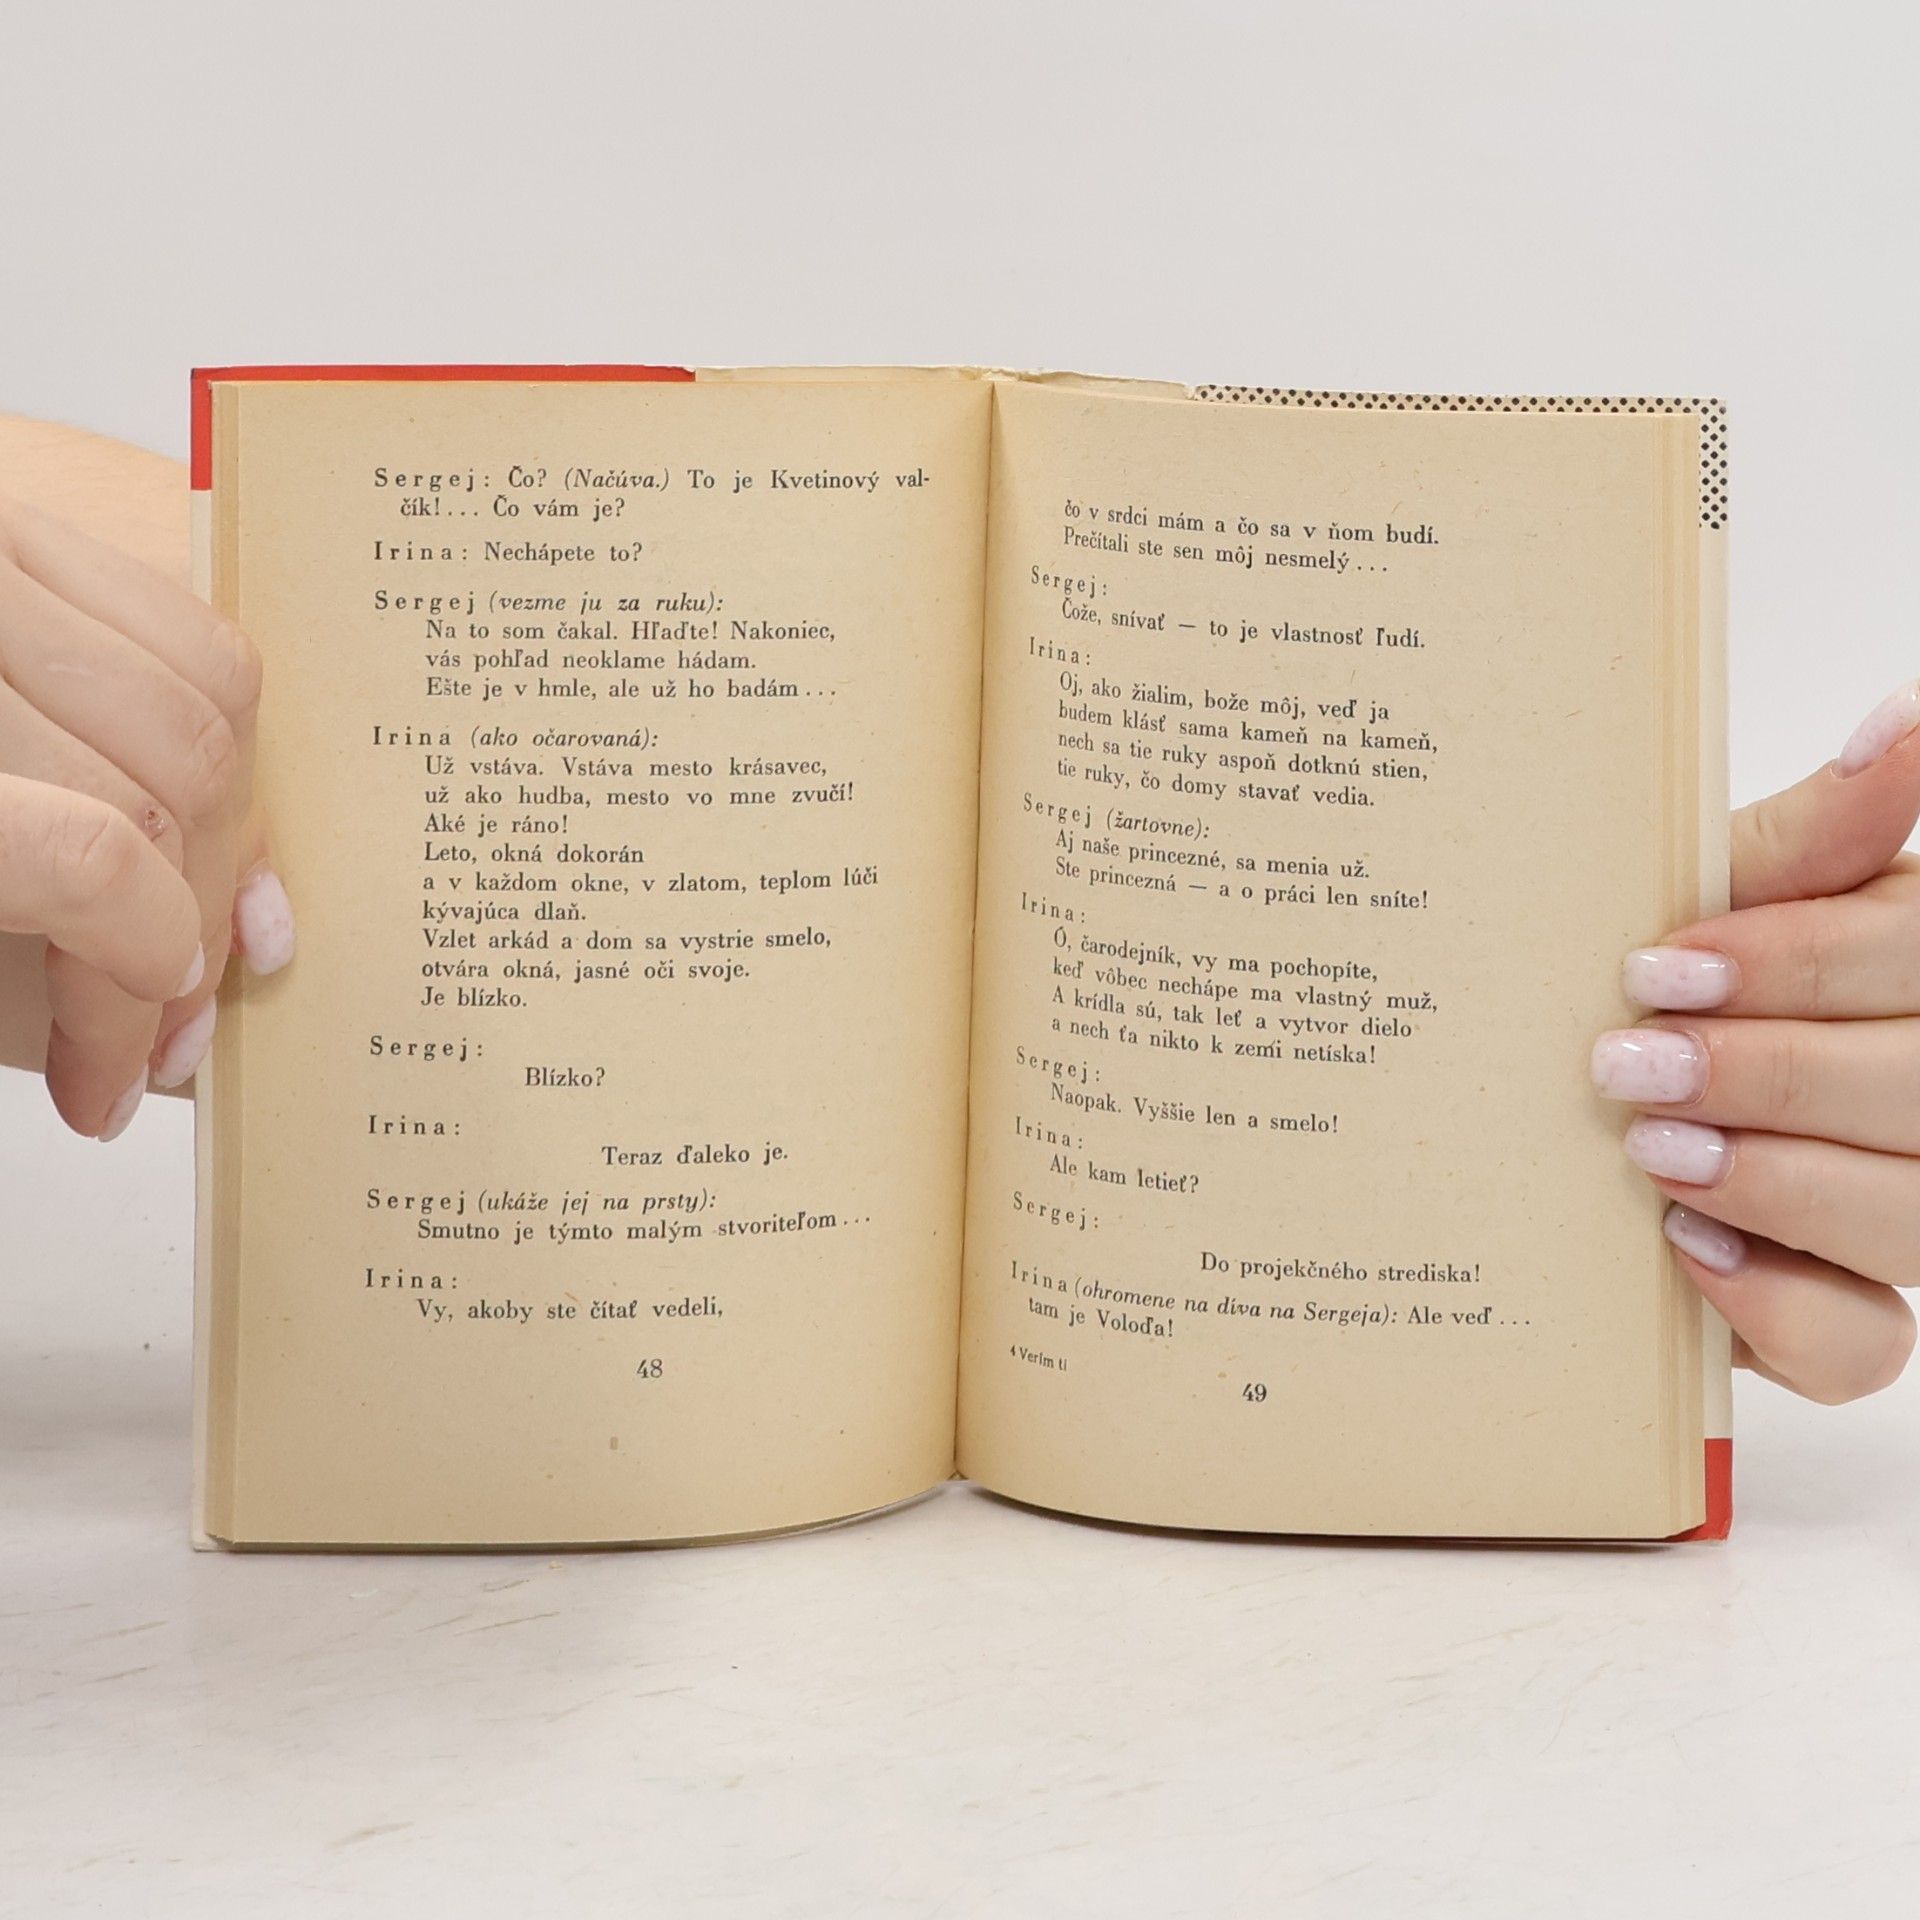 Sergej: Čo? (Načúva.) To je Kvetinový val-
čík!... Čo vám je?
Irina: Nechápete to?
Sergej (vezme ju za ruku):
Na to som čakal. Hľaďte! Nakoniec,
vás pohľad neoklame hádam.
Ešte je v hmle, ale už ho badám...
Irina (ako očarovaná):
Už vstáva. Vstáva mesto krásavec,
už ako hudba, mesto vo mne zvučí!
Aké je ráno!
Leto, okná dokorán
a v každom okne, v zlatom, teplom lúči
kývajúca dlaň.
Vzlet arkád a dom sa vystrie smelo,
otvára okná, jasné oči svoje.
Je blízko.
Sergej:
Blízko?
Irina:
Teraz ďaleko je.
Sergej (ukáže jej na prsty):
Smutno je týmto malým stvoriteľom...
Irina:
Vy, akoby ste čítať vedeli,
48
čo v srdci mám a čo sa v ňom budí.
Prečítali ste sen môj nesmelý...
Sergej:
Čože, snívať — to je vlastnosť ľudí.
Irina:
Oj, ako žialim, bože môj, veď ja
budem klásť sama kameň na kameň,
nech sa tie ruky aspoň dotknú stien,
tie ruky, čo domy stavať vedia.
Sergej (žartovne):
Aj naše princezné, sa menia už.
Ste princezná — a o práci len sníte!
Irina:
Ó, čarodejník, vy ma pochopíte,
keď vôbec nechápe ma vlastný muž,
A krídla sú, tak leť a vytvor dielo
a nech ťa nikto k zemi netíska!
Sergej:
Naopak. Vyššie len a smelo!
Irina:
Ale kam letieť?
Sergej:
Do projekčného strediska!
Irina (ohromene na díva na Sergeja): Ale veď...
tam je Voloďa!
4 Verím ti
49